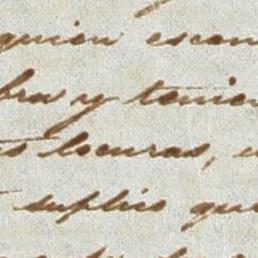 quien escon
bra y tenien
s locuras,
suplico que